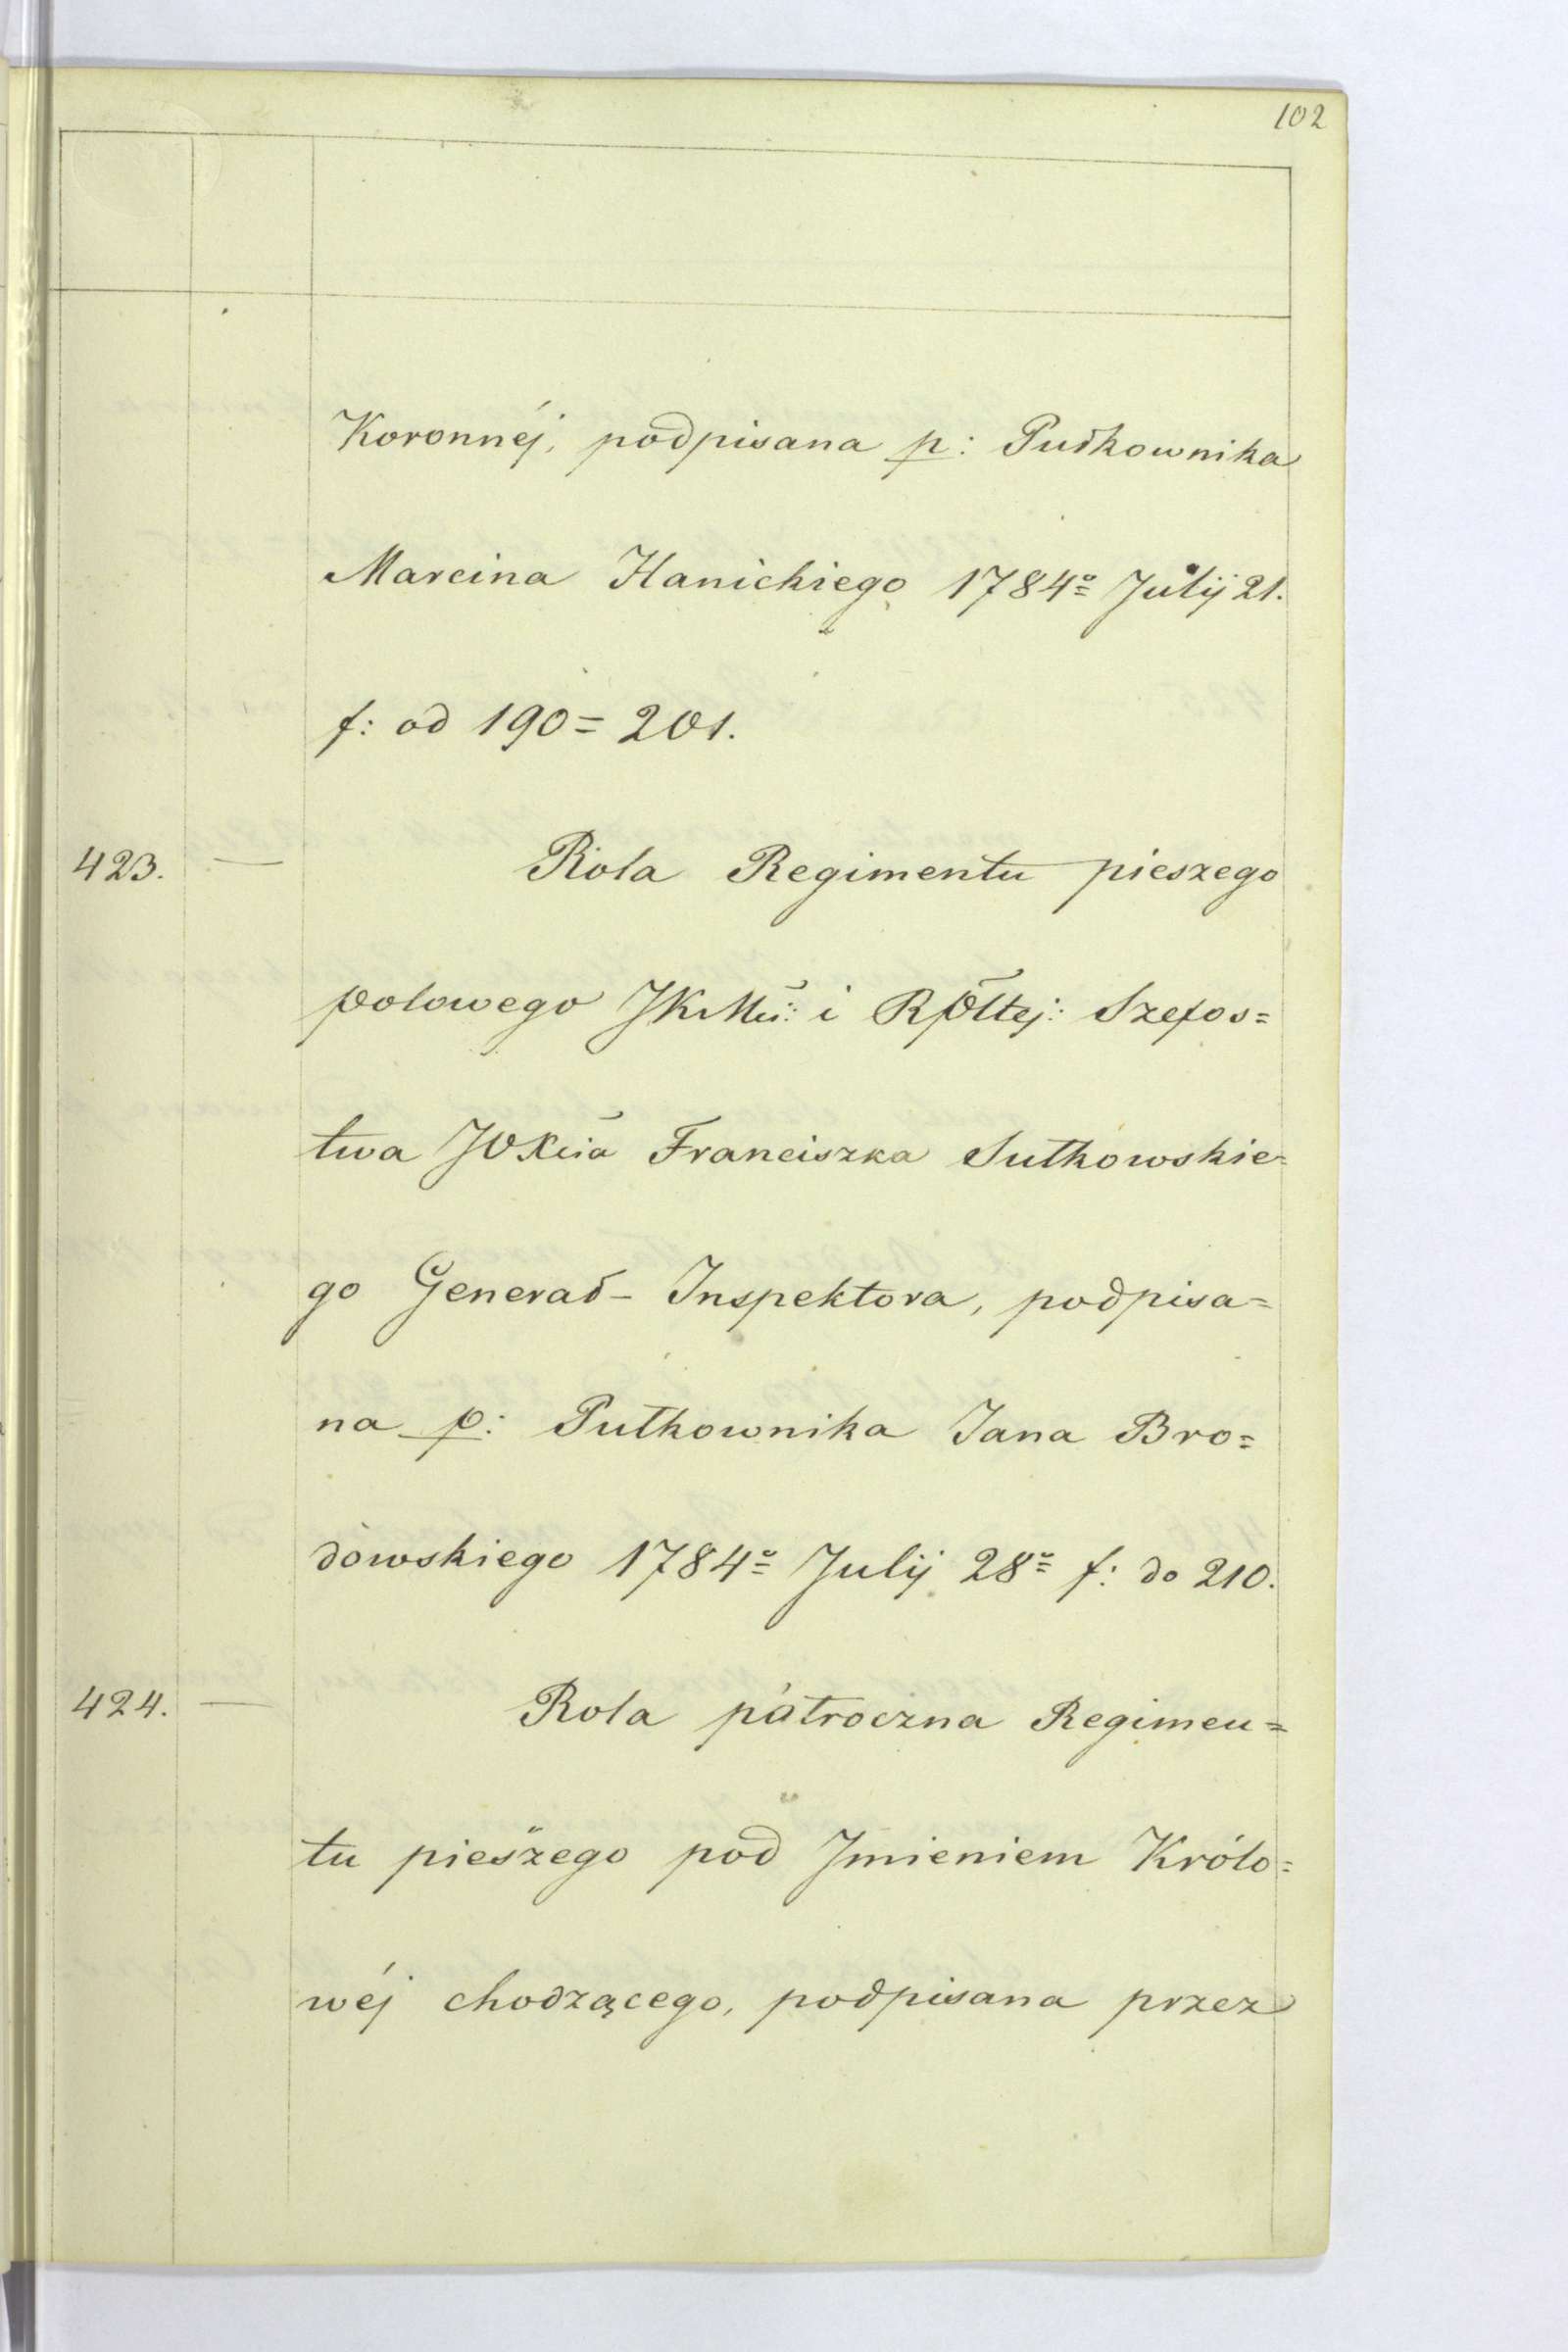 102
Koronnéj, podpisana p: Pułkownika
Marcina Hanickiego 1784º Julij 21.
f: od 190 = 201.
423. — Rola Regimentu pieszego
polowego JKMci: i Rpltej: Szefos=
twa JOXcia Franciszka Sułkowskie=
go Generał - Inspektora, podpisa=
na p: Pułkownika Jana Bro=
dowskiego 1784º Julij 28º f: do 210.
424. — Rola pátroczna Regimen=
tu pieszego pod Jmieniem Królo=
wéj chodzącego, podpisana przez